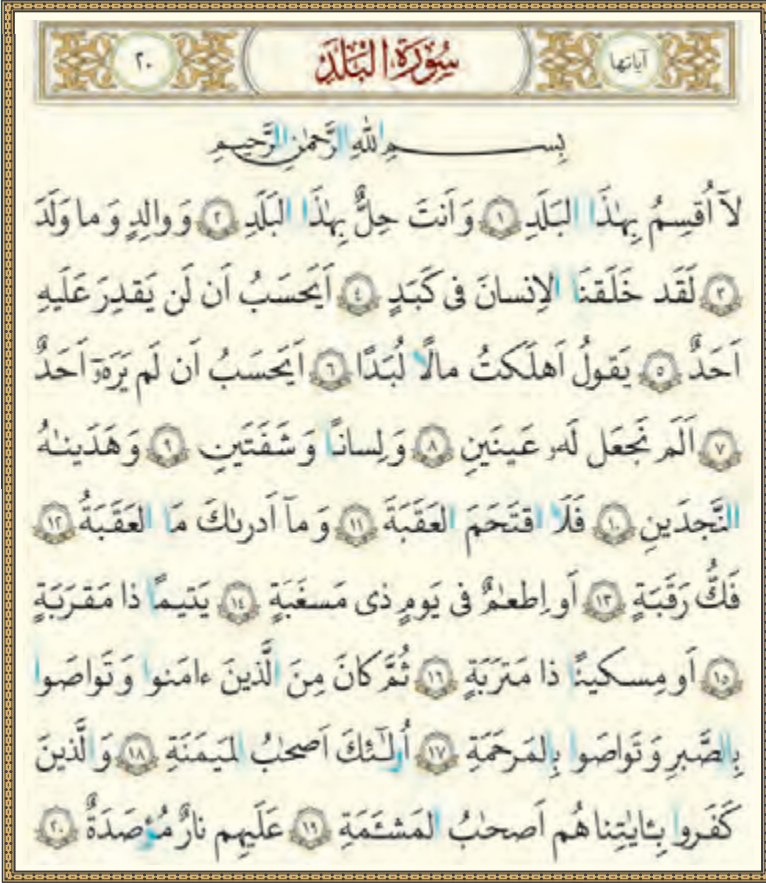 آیاتها سُورَةُ البَلَد ٢٠
بِسمِ اللّٰهِ الرَّحمٰنِ الرَّحیمِ
لآ اُقسِمُ بِهٰذَا البَلَدِ ١ وَ اَنتَ حِلٌّ بِهٰذَا البَلَدِ ٢ وَ والِدٍ وَ ما وَلَدَ
٣ لَقَد خَلَقنَا الاِنسانَ فی کَبَدٍ ٤ اَیَحسَبُ اَن لَن یَقدِرَ عَلَیهِ
اَحَدٌ ٥ یَقولُ اَهلَکتُ مالًا لُبَدًا ٦ اَیَحسَبُ اَن لَم یَرَهۥٓ اَحَدٌ
٧ اَلَم نَجعَل لَهۥ عَینَینِ ٨ وَ لِسانًا وَ شَفَتَینِ ٩ وَ هَدَینٰهُ
النَّجدَینِ ١٠ فَلَا اقتَحَمَ العَقَبَةَ ١١ وَ مآ اَدرىٰكَ مَا العَقَبَةُ ١٢
فَكُّ رَقَبَةٍ ١٣ اَو اِطعٰمٌ فی یَومٍ ذی مَسغَبَةٍ ١٤ یَتیمًا ذا مَقرَبَةٍ
١٥ اَو مِسکینًا ذا مَترَبَةٍ ١٦ ثُمَّ کانَ مِنَ الَّذینَ ءامَنوا وَ تَواصَوا
بِالصَّبرِ وَ تَواصَوا بِالمَرحَمَةِ ١٧ اُولٰٓئِكَ اَصحٰبُ المَیمَنَةِ ١٨ وَ الَّذینَ
کَفَروا بِـٔایٰتِنا هُم اَصحٰبُ المَشـَٔمَةِ ١٩ عَلَیهِم نارٌ مُؤصَدَةٌ ٢٠